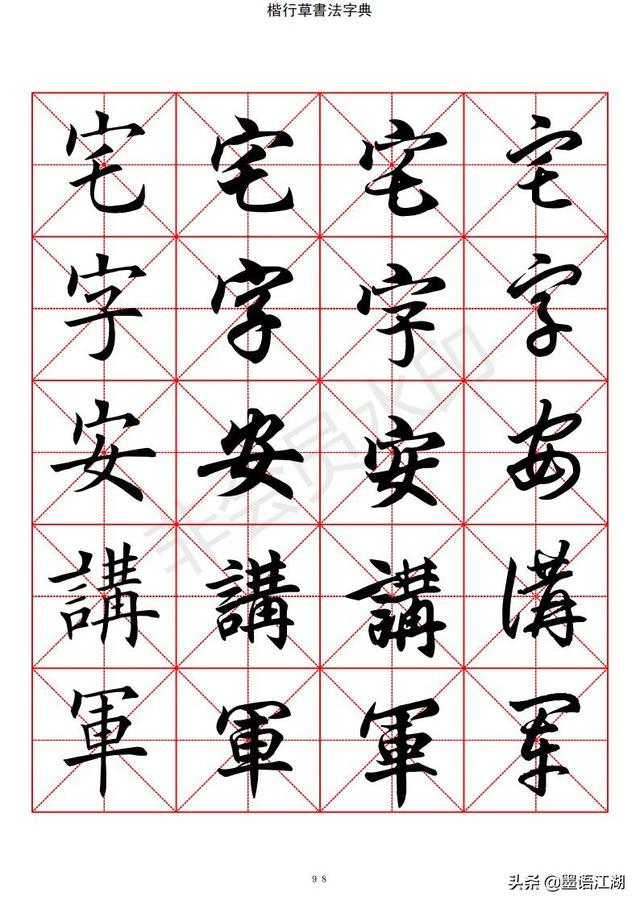 楷行草書法字典
宅 宅 宅 宅
字 字 字 字
安 安 安 安
講 講 講 講
軍 軍 軍 軍
非会员水印
98
头条 @墨语江湖